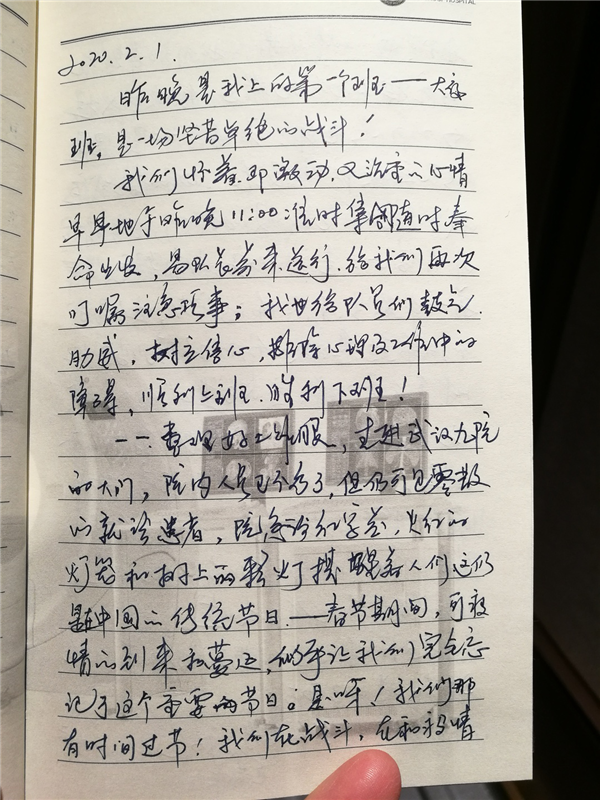 HOSPITAL
2020.2.1.
昨晚是我上的第一个班——大夜
班,是一场坚苦卓绝的战斗!
我们怀着即激动,又沉重的心情
早早地于昨晚11:00准时集合随时奉
命出发,易队长前来送行,给我们再次
叮嘱注意项事;我也给队员们鼓气.
助威,树立信心,排除心理及工作中的
障碍,顺利上班.胜利下班!
一一整理好工作服,走进武汉九院
的大门,院内人员已不多了,但仍可见零散
的就诊患者,院急诊红字差,火红的
灯笼和树上的彩灯提醒着人们这仍
是在中国的传统节日——春节期间,可疫
情的到来和蔓延,似乎让我们完全忘
记了这个重要的节日。是呀!我们那
有时间过节!我们在战斗,在和疫情